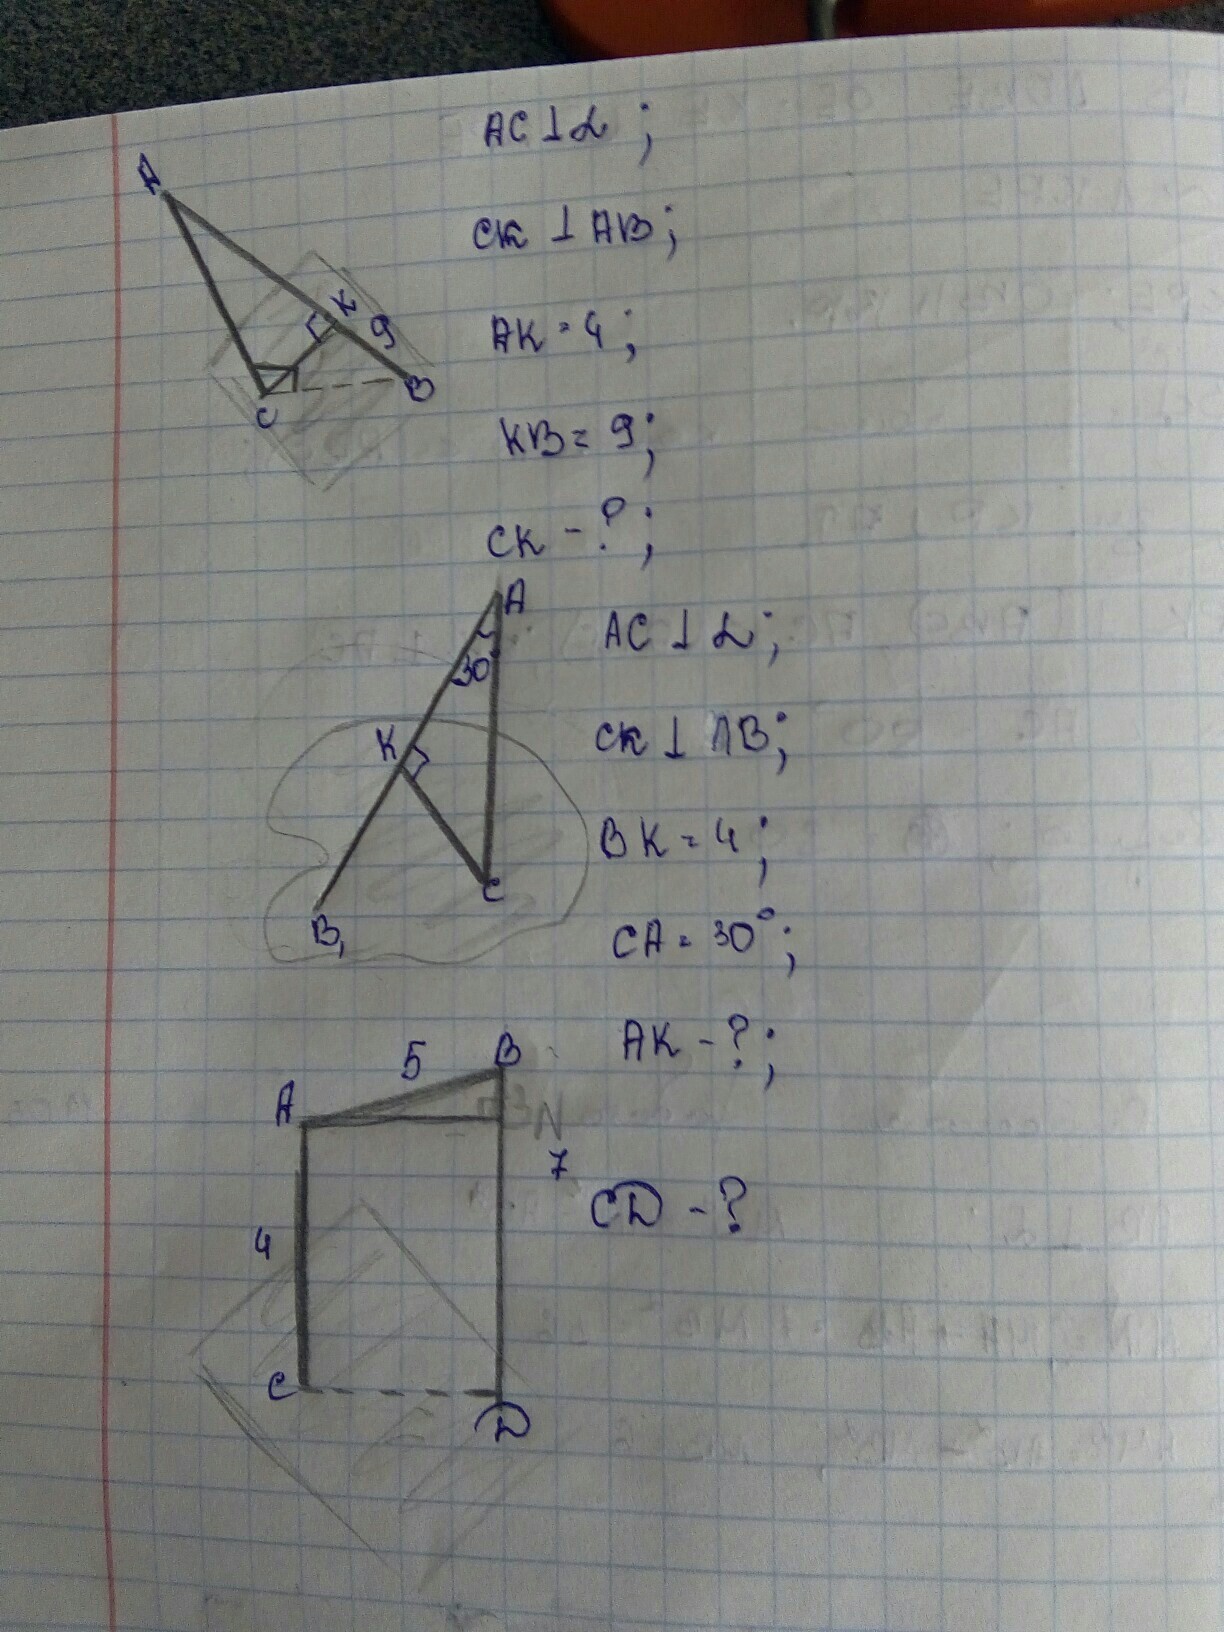 A
K
9
C
B
AC ⊥ α;
CK ⊥ AB;
AK = 4;
KB = 9;
CK - ?;
A
30
K
C
B,
AC ⊥ α;
CK ⊥ AB;
BK = 4;
CA = 30°;
AK - ?;
5
B
A
N
7
4
C
D
CD - ?